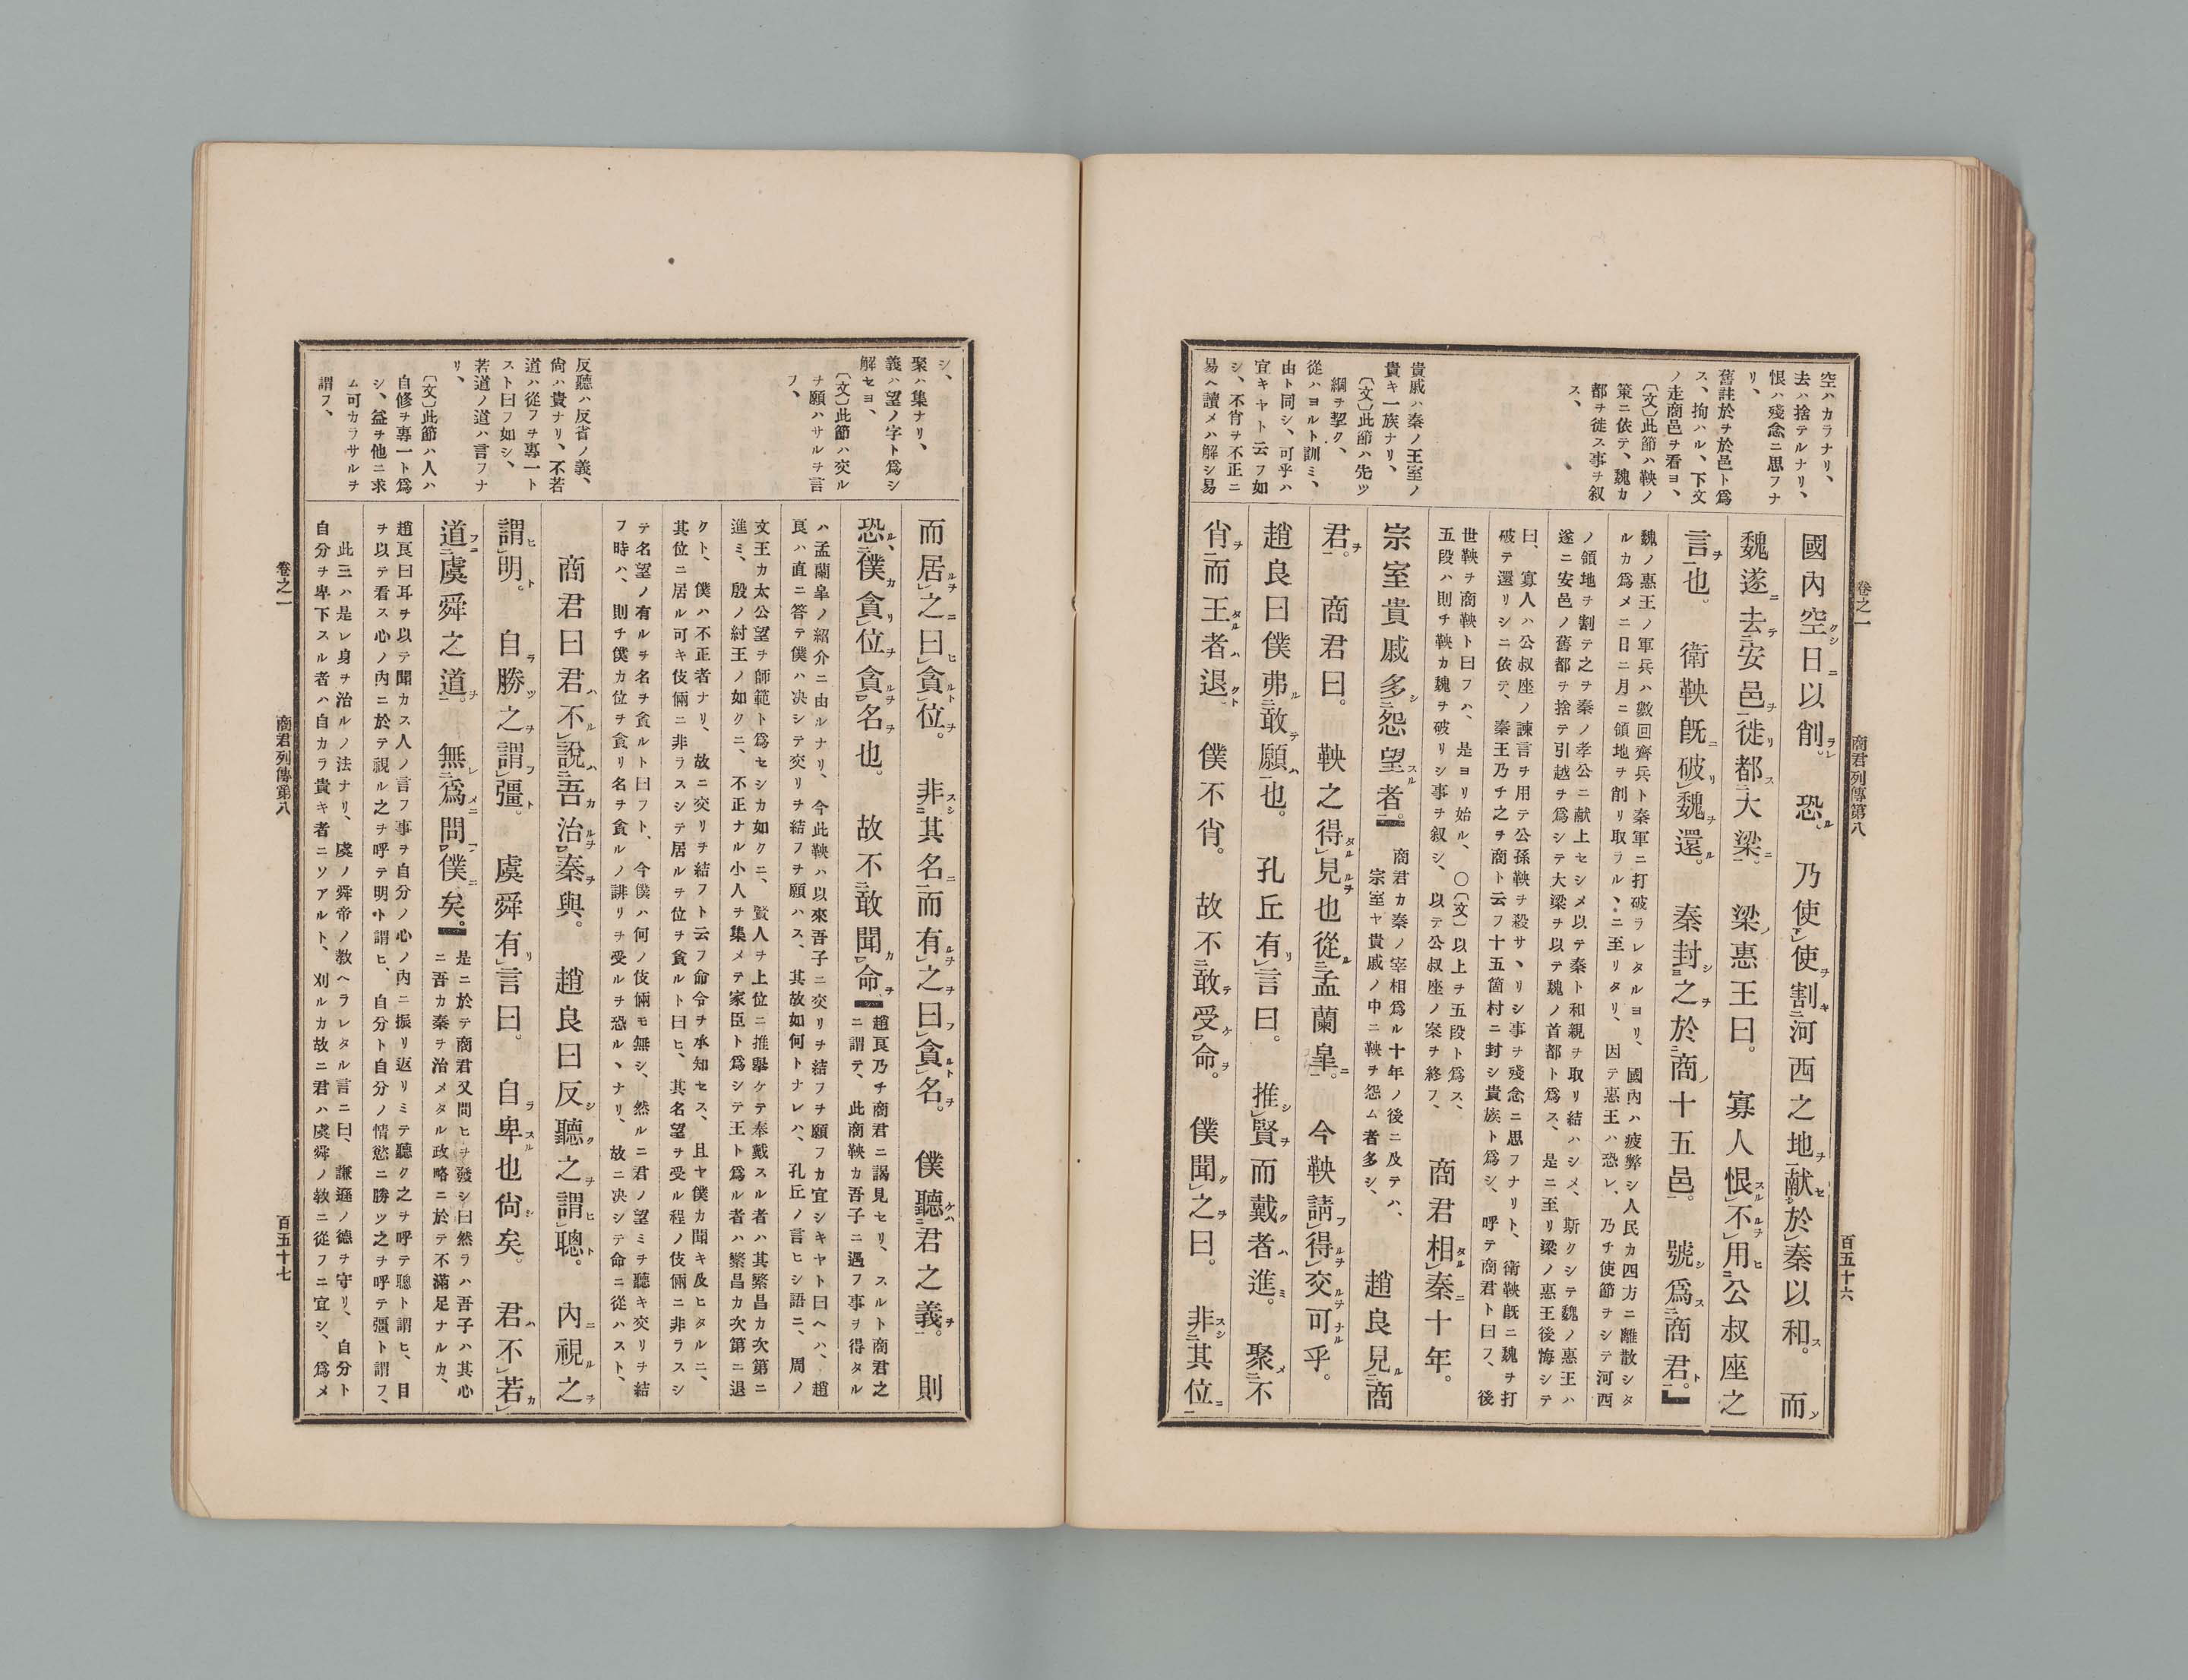 卷之一　商君列傳第八　百五十六
空ハカラナリ、
去ハ捨テルナリ、
恨ハ殘念ニ思フナ
リ、
舊註於ヲ於邑ト爲
ス、拘ハル、下文
ノ走商邑ヲ看ヨ、
〔文〕此節ハ鞅ノ
策ニ依テ、魏カ
都ヲ徙ス事ヲ叙
ス、
貴戚ハ秦ノ王室ノ
貴キ一族ナリ、
〔文〕此節ハ先ツ
綱ヲ挈ク、
從ハヨルト訓ミ、
由ト同シ、可乎ハ
宜キヤト云フ如
シ、不肖ヲ不正ニ
易ヘ讀メハ解シ易
國內空日以削。恐。乃使使割河西之地献於秦以和。而
魏遂去安邑徙都大梁。梁惠王曰。寡人恨不用公叔座之
言也。衛鞅旣破魏還。秦封之於商十五邑。號爲商君。
魏ノ惠王ノ軍兵ハ數回齊兵ト秦軍ニ打破ラレタルヨリ、國內ハ疲弊シ人民カ四方ニ離散シタ
ルカ爲メニ日ニ月ニ領地ヲ削リ取ラルヽニ至リタリ、因テ惠王ハ恐レ、乃チ使節ヲシテ河西
ノ領地ヲ割テ之ヲ秦ノ孝公ニ献上セシメ以テ秦ト和親ヲ取リ結ハシメ、斯クシテ魏ノ惠王ハ
遂ニ安邑ノ舊都ヲ捨テ引越ヲ爲シテ大梁ヲ以テ魏ノ首都ト爲ス、是ニ至リ梁ノ惠王後悔シテ
曰、寡人ハ公叔座ノ諫言ヲ用テ公孫鞅ヲ殺サヽリシ事ヲ殘念ニ思フナリト、衛鞅旣ニ魏ヲ打
破テ還リシニ依テ、秦王乃チ之ヲ商ト云フ十五箇村ニ封シ貴族ト爲シ、呼テ商君ト曰フ、後
世鞅ヲ商鞅ト曰フハ、是ヨリ始ル、〇〔文〕以上ヲ五段ト爲ス、
五段ハ則チ鞅カ魏ヲ破リシ事ヲ叙シ、以テ公叔座ノ案ヲ終フ、
商君相秦十年。
宗室貴戚多怨望者。
商君カ秦ノ宰相爲ル十年ノ後ニ及テハ、
宗室ヤ貴戚ノ中ニ鞅ヲ怨ム者多シ、
趙良見商
君。商君曰。鞅之得見也從孟蘭皐。今鞅請得交可乎。
趙良曰僕弗敢願也。孔丘有言曰。推賢而戴者進。聚不
肖而王者退。僕不肖。故不敢受命。僕聞之曰。非其位
シ、
聚ハ集ナリ、
義ハ望ノ字ト爲シ
解セヨ、
〔文〕此節ハ交ル
ヲ願ハサルヲ言
フ、
反聽ハ反省ノ義、
尙ハ貴ナリ、不若
道ハ從フヲ專一ト
スト曰フ如シ、
若道ノ道ハ言フナ
リ、
〔文〕此節ハ人ハ
自修ヲ專一ト爲
シ、益ヲ他ニ求
ム可カラサルヲ
謂フ、
而居之曰貪位。非其名而有之曰貪名。僕聽君之義。則
恐僕貪位貪名也。故不敢聞命。
趙良乃チ商君ニ謁見セリ、スルト商君之
ニ謂テ、此商鞅カ吾子ニ遇フ事ヲ得タル
ハ孟蘭皐ノ紹介ニ由ルナリ、今此鞅ハ以來吾子ニ交リヲ結フヲ願フカ宜シキヤト曰ヘハ、趙
良ハ直ニ答テ僕ハ决シテ交リヲ結フヲ願ハス、其故如何トナレハ、孔丘ノ言ヒシ語ニ、周ノ
文王カ太公望ヲ師範ト爲セシカ如クニ、賢人ヲ上位ニ推擧ケテ奉戴スル者ハ其繁昌カ次第ニ
進ミ、殷ノ紂王ノ如クニ、不正ナル小人ヲ集メテ家臣ト爲シテ王ト爲ル者ハ繁昌カ次第ニ退
クト、僕ハ不正者ナリ、故ニ交リヲ結フト云フ命令ヲ承知セス、且ヤ僕カ聞キ及ヒタルニ、
其位ニ居ル可キ伎倆ニ非ラスシテ居ルヲ位ヲ貪ルト曰ヒ、其名望ヲ受ル程ノ伎倆ニ非ラスシ
テ名望ノ有ルヲ名ヲ貪ルト曰フト、今僕ハ何ノ伎倆モ無シ、然ルニ君ノ望ミヲ聽キ交リヲ結
フ時ハ、則チ僕カ位ヲ貪リ名ヲ貪ルノ誹リヲ受ルヲ恐ルヽナリ、故ニ决シテ命ニ從ハスト、
商君曰君不說吾治秦與。趙良曰反聽之謂聰。內視之
謂明。自勝之謂彊。虞舜有言曰。自卑也尙矣。君不若
道虞舜之道。無爲問僕矣。
是ニ於テ商君又問ヒヲ發シ曰然ラハ吾子ハ其心
ニ吾カ秦ヲ治メタル政略ニ於テ不滿足ナルカ、
趙良曰耳ヲ以テ聞カス人ノ言フ事ヲ自分ノ心ノ內ニ振リ返リミテ聽ク之ヲ呼テ聰ト謂ヒ、目
ヲ以テ看ス心ノ內ニ於テ視ル之ヲ呼テ明ト謂ヒ、自分ト自分ノ情慾ニ勝ツ之ヲ呼テ彊ト謂フ、
此三ハ是レ身ヲ治ルノ法ナリ、虞ノ舜帝ノ敎ヘラレタル言ニ曰、謙遜ノ德ヲ守リ、自分ト
自分ヲ卑下スル者ハ自カラ貴キ者ニソアルト、刈ルカ故ニ君ハ虞舜ノ敎ニ從フニ宜シ、爲メ
卷之一　商君列傳第八　百五十七